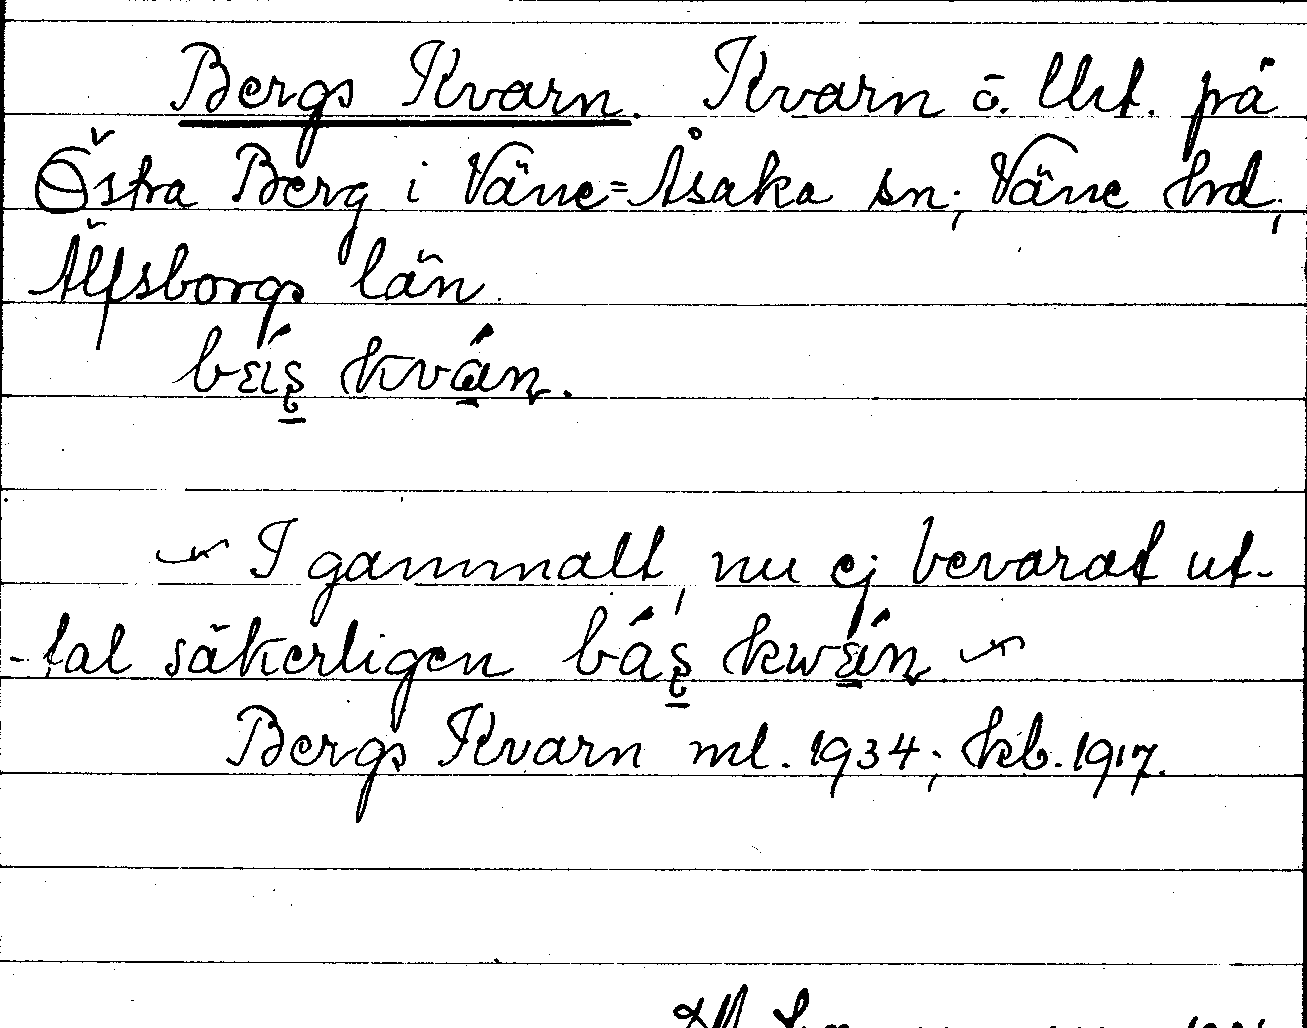 Bergs Kvarn. Kvarn o. Uit. på
Östra Berg i Väne=Åsaka sn; Väne hrd,
Älfsborgs län.
kván.
I gammalt, nu ej bevarat ut-
-tal säkerligen bás̨ kwán
Bergs Kvarn ml. 1934; kb. 1917.